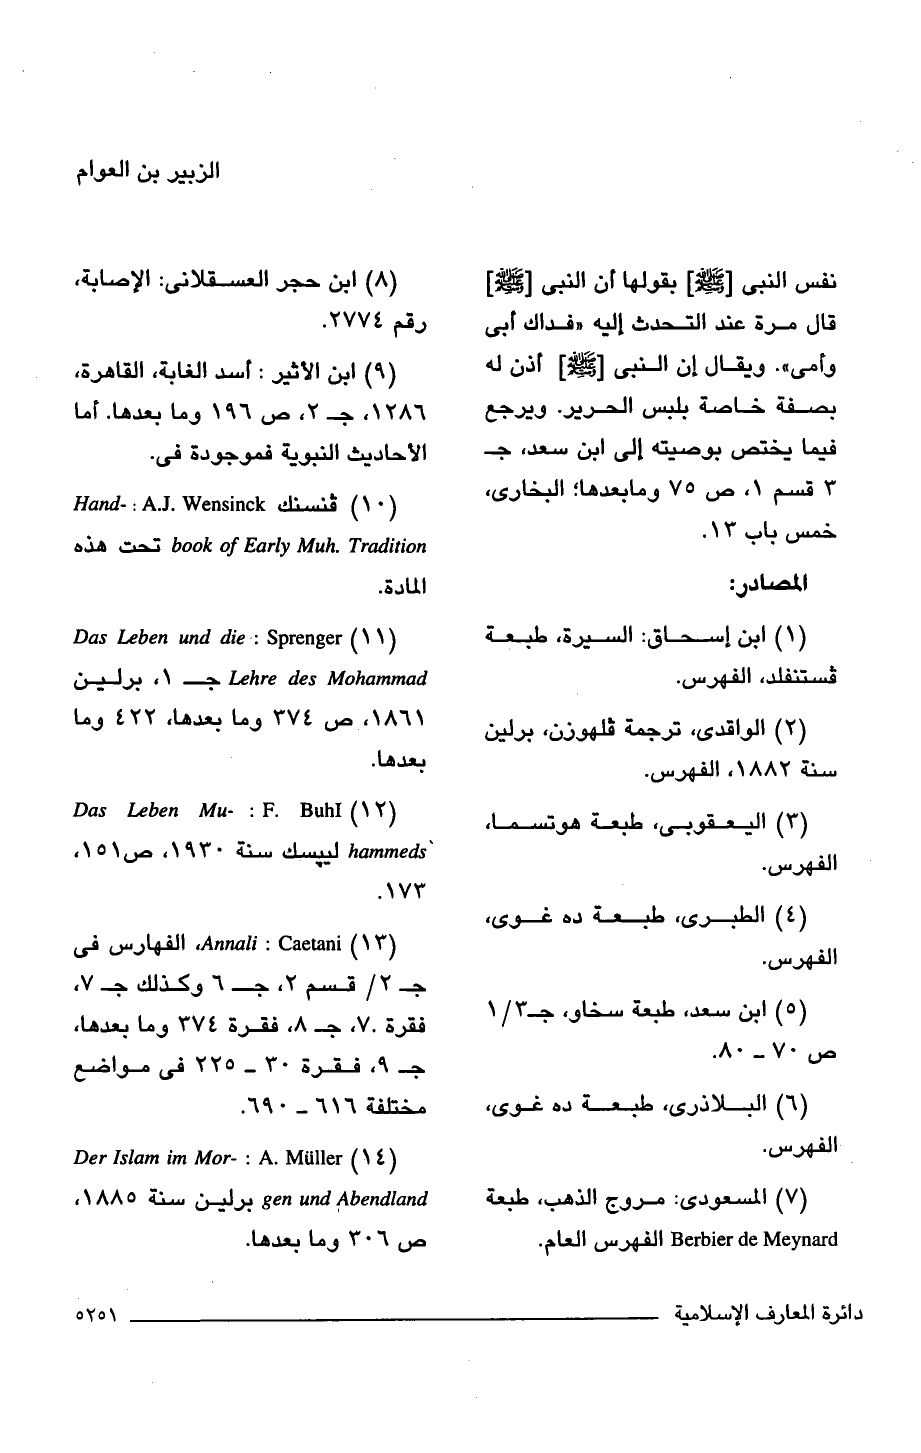 الزبير بن العوام
نفس النبى [ﷺ] بقولها أن النبى [ﷺ]
قال مرة عند التحدث إليه «فداك أبى
وأمى». ويقال إن النبى [ﷺ] أذن له
بصفة خاصة بلبس الحرير. ويرجع
فيما يختص بوصيته إلى ابن سعد، جـ
٣ قسم ١، ص ٧٥ ومابعدها؛ البخارى،
خمس باب ١٣.
المصادر:
(١) ابن إسحاق: السيرة، طبعة
ڤستنفلد، الفهرس.
(٢) الواقدى، ترجمة ڤلهوزن، برلين
سنة ١٨٨٢، الفهرس.
(٣) اليعقوبى، طبعة هوتسما،
الفهرس.
(٤) الطبرى، طبعة ده غوى،
الفهرس.
(٥) ابن سعد، طبعة سخاو، جـ٣/ ١
ص ٧٠ – ٨٠.
(٦) البلاذرى، طبعة ده غوى،
الفهرس.
(٧) المسعودى: مروج الذهب، طبعة
Berbier de Meynard الفهرس العام.
(٨) ابن حجر العسقلانى: الإصابة،
رقم ٢٧٧٤.
(٩) ابن الأثير : أسد الغابة، القاهرة،
١٢٨٦، جـ ٢، ص ١٩٦ وما بعدها. أما
الأحاديث النبوية فموجودة فى.
(١٠) ڤنسنك A.J. Wensinck : Hand-
book of Early Muh. Tradition تحت هذه
المادة.
(١١) Sprenger : Das Leben und die
Lehre des Mohammad جـ ١، برلين
١٨٦١، ص ٣٧٤ وما بعدها، ٤٢٢ وما
بعدها.
(١٢) F. Buhl : Das Leben Mu-
hammeds ليپسك سنة ١٩٣٠، ص١٥١،
١٧٣.
(١٣) Caetani : Annali، الفهارس فى
جـ ٢/ قسم ٢، جـ ٦ وكذلك جـ ٧،
فقرة .٧، جـ ٨، فقرة ٣٧٤ وما بعدها،
جـ ٩، فقرة ٣٠ – ٢٢٥ فى مواضع
مختلفة ٦١٦ – ٦٩٠.
(١٤) A. Müller : Der Islam im Mor-
gen und Abendland برلين سنة ١٨٨٥،
ص ٣٠٦ وما بعدها.
دائرة المعارف الإسلامية ٥٢٥١